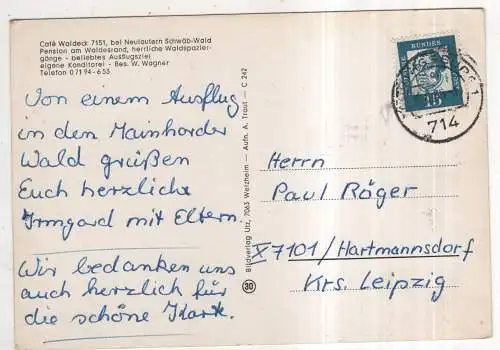 Café Waldeck 7151, bei Neulautern Schwäb-Wald
Pension am Waldesrand, herrliche Waldspazier-
gänge - beliebtes Ausflugsziel
eigene Konditorei - Bes. W. Wagner
Telefon 07194-653
Von einem Ausflug
in den Mainharder
Wald grüßen
Euch herzlichst
Irmgard mit Eltern.
Wir bedanken uns
auch herzlich für
die schöne Karte.
Bildverlag Utz, 7063 Welzheim - Aufn. A. Traut - C 242
30
BUNDES
15
714
Herrn
Paul Röger
X7101/Hartmannsdorf
Krs. Leipzig